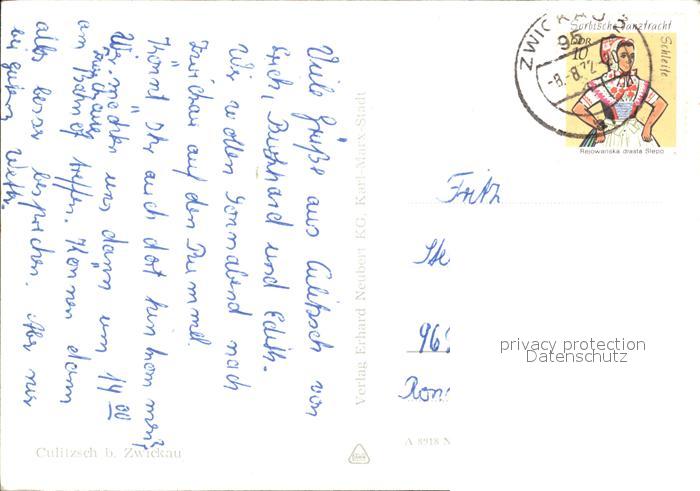 Viele Grüße aus Culitzsch von
Erich, Burkhard und Edith.
Wir wollen Sonnabend nach
Zwickau auf den Rummel.
Könnt Ihr auch dort hinkommen?
Wir möchten uns dann um 14 00
am Bahnhof treffen. Können dann
alles besser besprechen. Aber nur
bei gutem Wetter.
Culitzsch b. Zwickau
Verlag Erhard Neubert KG, Karl-Marx-Stadt
A 8918 N
ZWICKAU 3
95
-8.-8.72
Sorbische Tanztracht
Schleife
DDR
10
Rejowanska drasta Slepo
Fritz
Ste
969
privacy protection
Datenschutz